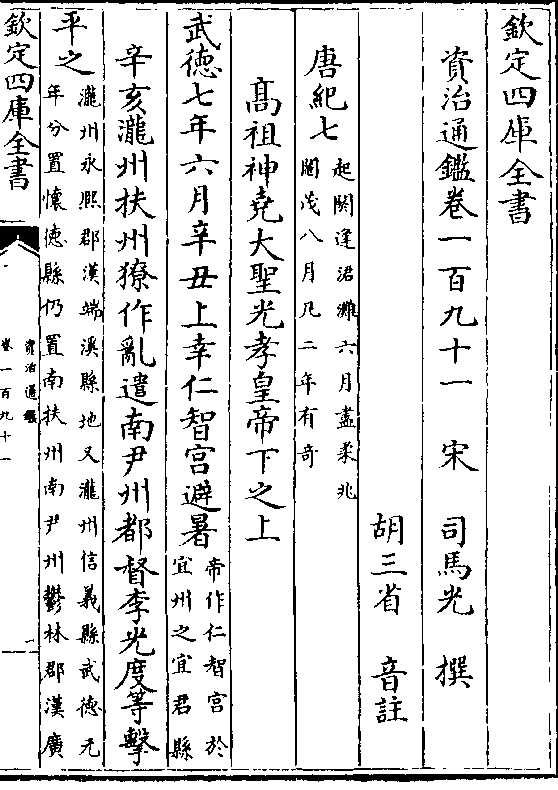 欽定四庫全書
資治通鑑卷一百九十一　宋　司馬光　撰
胡三省　音註
唐紀七
起閼逢涒灘六月盡柔兆
閹茂八月凡二年有奇
髙祖神堯大聖光孝皇帝下之上
武德七年六月辛丑上幸仁智宫避暑
帝作仁智宮於
宜州之宜君縣
辛亥瀧州扶州獠作亂遣南尹州都督李光度等擊
平之
瀧州永熙郡漢端溪縣地又瀧州信義縣武德元
年分置懷德縣仍置南扶州南尹州鬱林郡漢廣
欽定四庫全書
資治通鑑
卷一百九十一
一